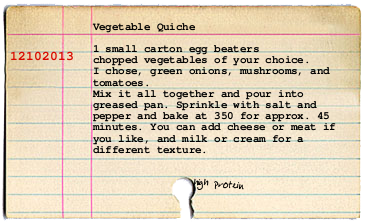 Vegetable Quiche
12102013
1 small carton egg beaters
chopped vegetables of your choice.
I chose, green onions, mushrooms, and
tomatoes.
Mix it all together and pour into
greased pan. Sprinkle with salt and
pepper and bake at 350 for approx. 45
minutes. You can add cheese or meat if
you like, and milk or cream for a
different texture.
high protein